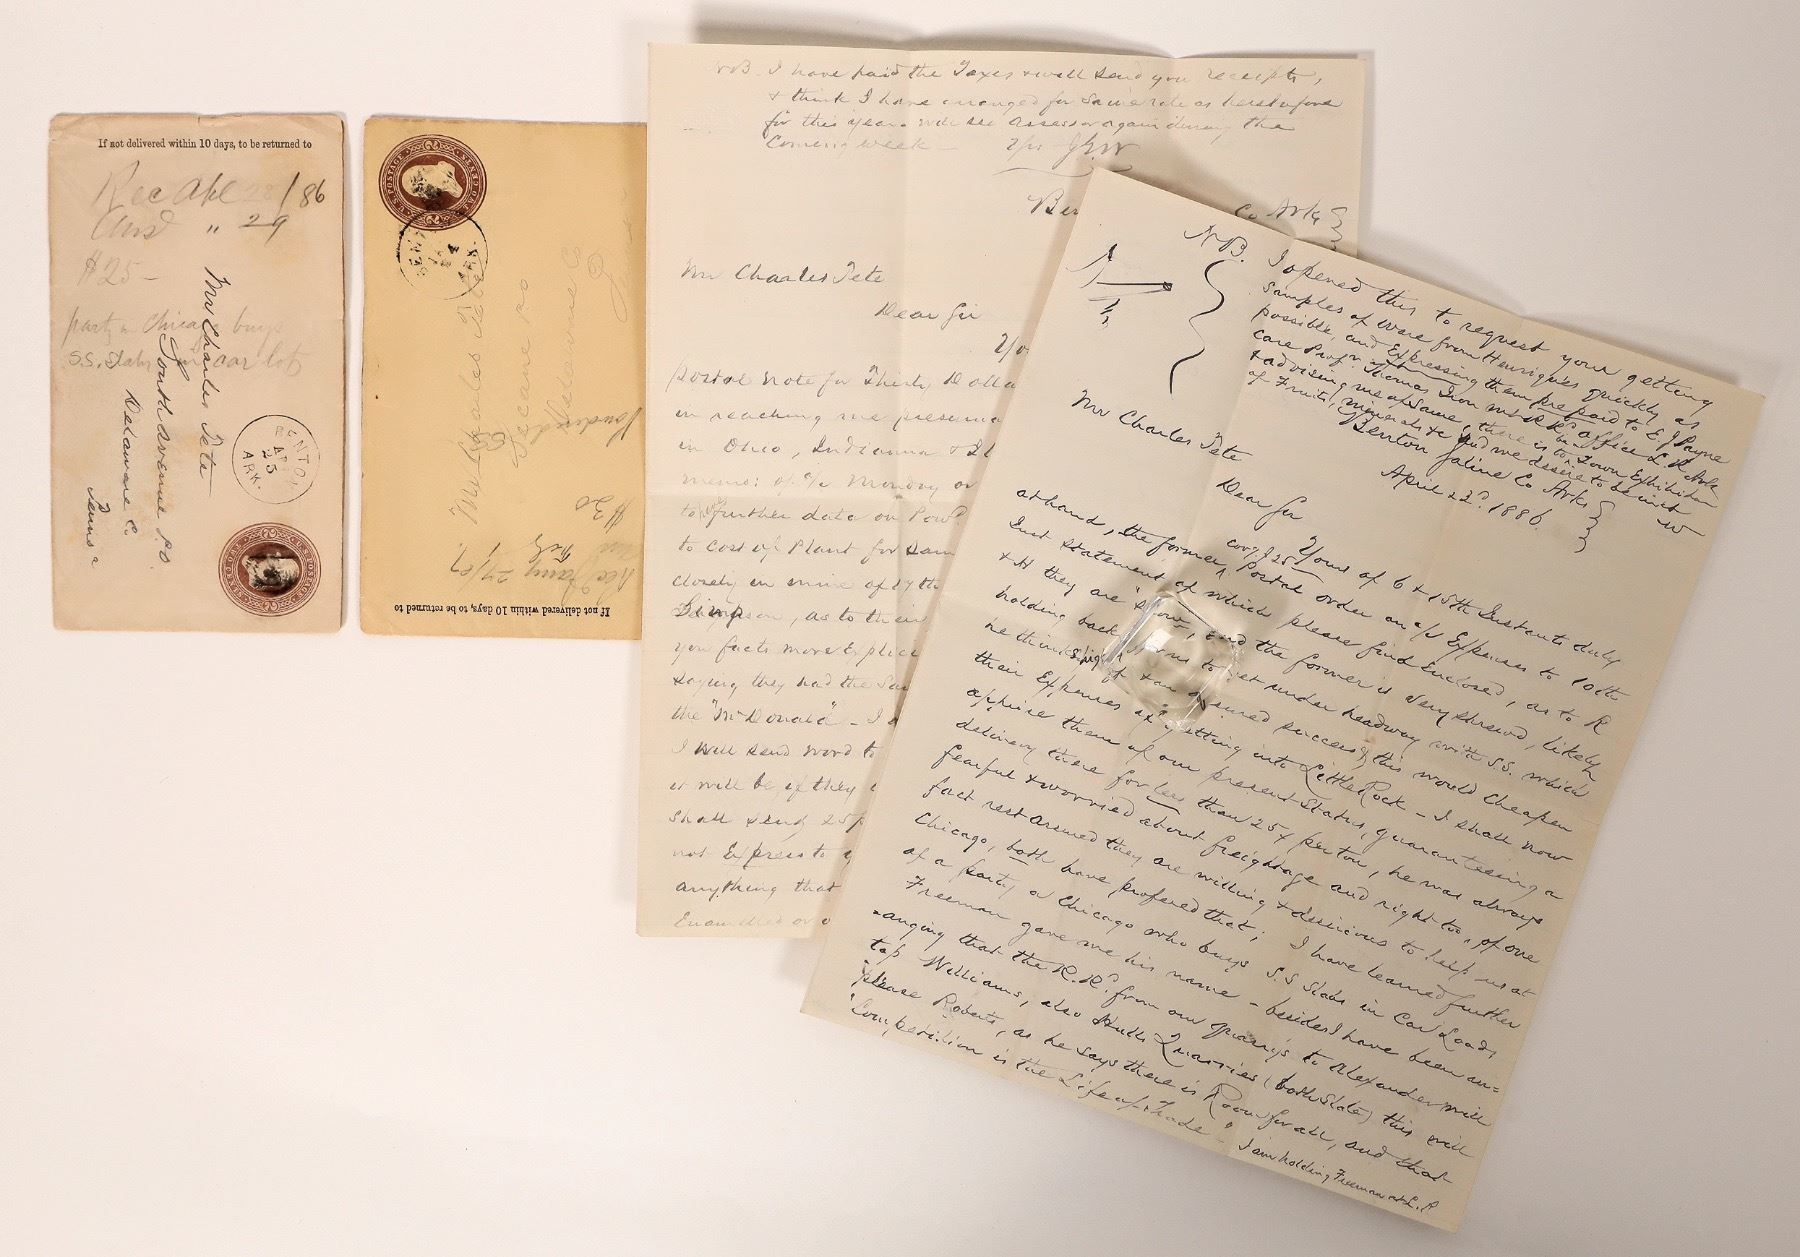 If not delivered within 10 days, to be returned to
Rec Apl 28/86
Ansd " 29
$25-
party in Chicago buys
S.S. Slabs in car lots
Mr Charles Tete
South avenue P.O.
Delaware Co.
Penna
BENTON
APR
23
ARK.
U.S. POSTAGE
U.S. POSTAGE
ARK.
Mr Charles Tete
Secane P.O
Delaware Co
Penna
$30
Rec Jany 27/87
If not delivered within 10 days, to be returned to
NB. I have paid the Taxes & will send you receipts,
& think I have arranged for same rate as heretofore
for this year. will see Assessor again during the
Coming week — JGW
Co Ark
Mr Charles Tete
Dear Sir
postal note for Thirty Dolla
in reaching me
in Ohio, Indianna &
memo: of Monday
to further data on
to cost of Plant for Sam
closely in mine of 17th
as to their
you facts more Explici
saying they had the Sa
the "McDonald" - I
I will send word to
it will be, if they
shall send 25
not Express to
anything that
Enamelled or
N.B. I opened this to request your getting
samples of ware from Henriques quickly as
possible, and Expressing them prepaid to E. J Payne
care Profr. Thomas, Iron Mt RRs office L. R Ark
& advising me of same, there is to be a Town Exhibition
of Fruits, minerals & and we desire to be in it
W
Benton Saline Co Ark
April 22d. 1886.
Mr Charles Tete
Dear Sir
Yours of 6 & 15th Instants duly
at hand, the former covg $25 Postal order on a/c Expenses to 10th
Inst statement of which please find Enclosed, as to R
& H they are "slow", and the former is very shrewd, likely
holding back for us to get under headway with S.S. which
he thinks right & an assured success, this would cheapen
their Expenses in getting into Little Rock - I shall now
apprise them of our present status, guaranteeing a
delivery there for less than 25¢ per ton, he was always
fearful & worried about freightage and right too, of one
fact rest assured they are willing & desirous to help us at
Chicago, both have proffered that; I have learned further
of a party in Chicago who buys S.S Slabs in Car Loads,
Freeman gave me his name - besides I have been arr=
=anging that the R.R. from our quarrys to Alexander will
tap Williams, also Hulls Quarries (both slate) this will
please Roberts, as he says there is Room for all, and that
"Competition is the Life of Trade" - I am holding Freeman at L.R